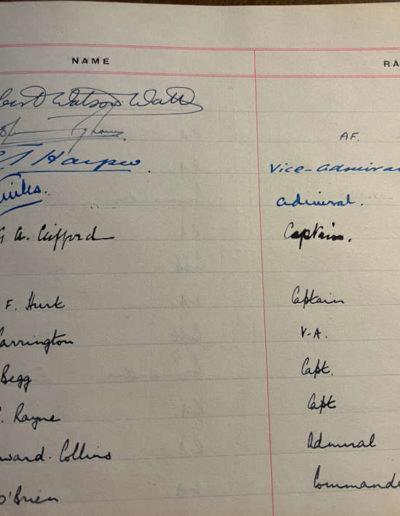 NAME RA
Watson Watt
AF.
Harper Vice-admiral
admiral.
G A. Clifford Captain.
F. Hurt Captain
arrington V-A.
Begg Capt.
Rayne Capt
ward. Collins Admiral
O'Brien Commande